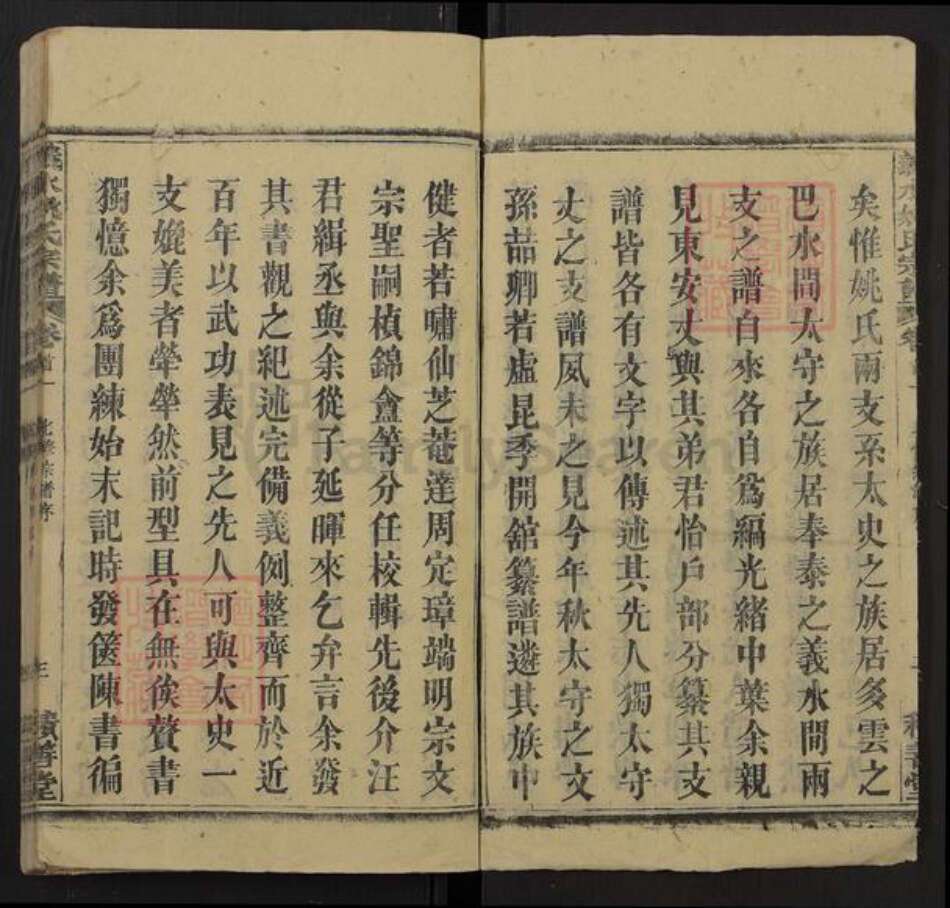 矣惟姚氏兩支系太史之族居多雲之
巴水間太守之族居奉泰之義水間兩
支之譜自來各自為編光緒中葉余親
見東安丈與其弟君怡戶部分纂其支
譜皆各有文字以傳述其先人獨太守
丈之支譜夙未之見今年秋太守之文
孫喆卿若虛昆季開舘纂譜遴其族中
健者若嘯仙芝菴達周定璋端明宗文
宗聖嗣楨錦盦等分任校輯先後介汪
君緝丞與余從子延暉來乞弁言余發
其書觀之紀述完備義例整齊而於近
百年以武功表見之先人可與太史一
支媲美者犖犖然前型具在無俟贅書
獨憶余爲團練始末記時發篋陳書徧
義水姚氏宗譜 卷首一
積善堂